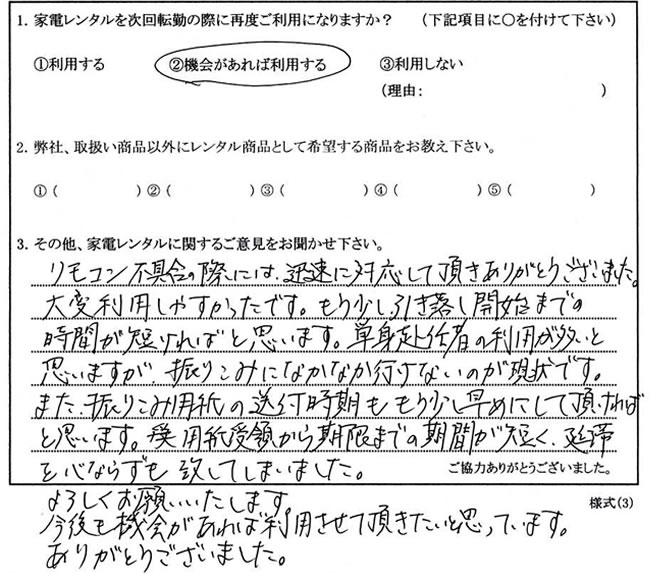 1. 家電レンタルを次回転勤の際に再度ご利用になりますか？ (下記項目に○を付けて下さい)
①利用する ②機会があれば利用する ③利用しない
(理由: )
2. 弊社、取扱い商品以外にレンタル商品として希望する商品をお教え下さい。
①( )②( )③( )④( )⑤( )
3. その他、家電レンタルに関するご意見をお聞かせ下さい。
リモコン不具合の際には、迅速に対応して頂きありがとうございました。
大変利用しやすかったです。もう少し引き落し開始までの
時間が短ければと思います。単身赴任者の利用が多いと
思いますが、振りこみになかなか行けないのが現状です。
また、振りこみ用紙の送付時期ももう少し早めにして頂ければ
と思います。用紙受領から期限までの期間が短く、延滞
を心ならずも致してしまいました。
ご協力ありがとうございました。
よろしくお願いいたします。
様式(3)
今後も機会があれば利用させて頂きたいと思っています。
ありがとうございました。